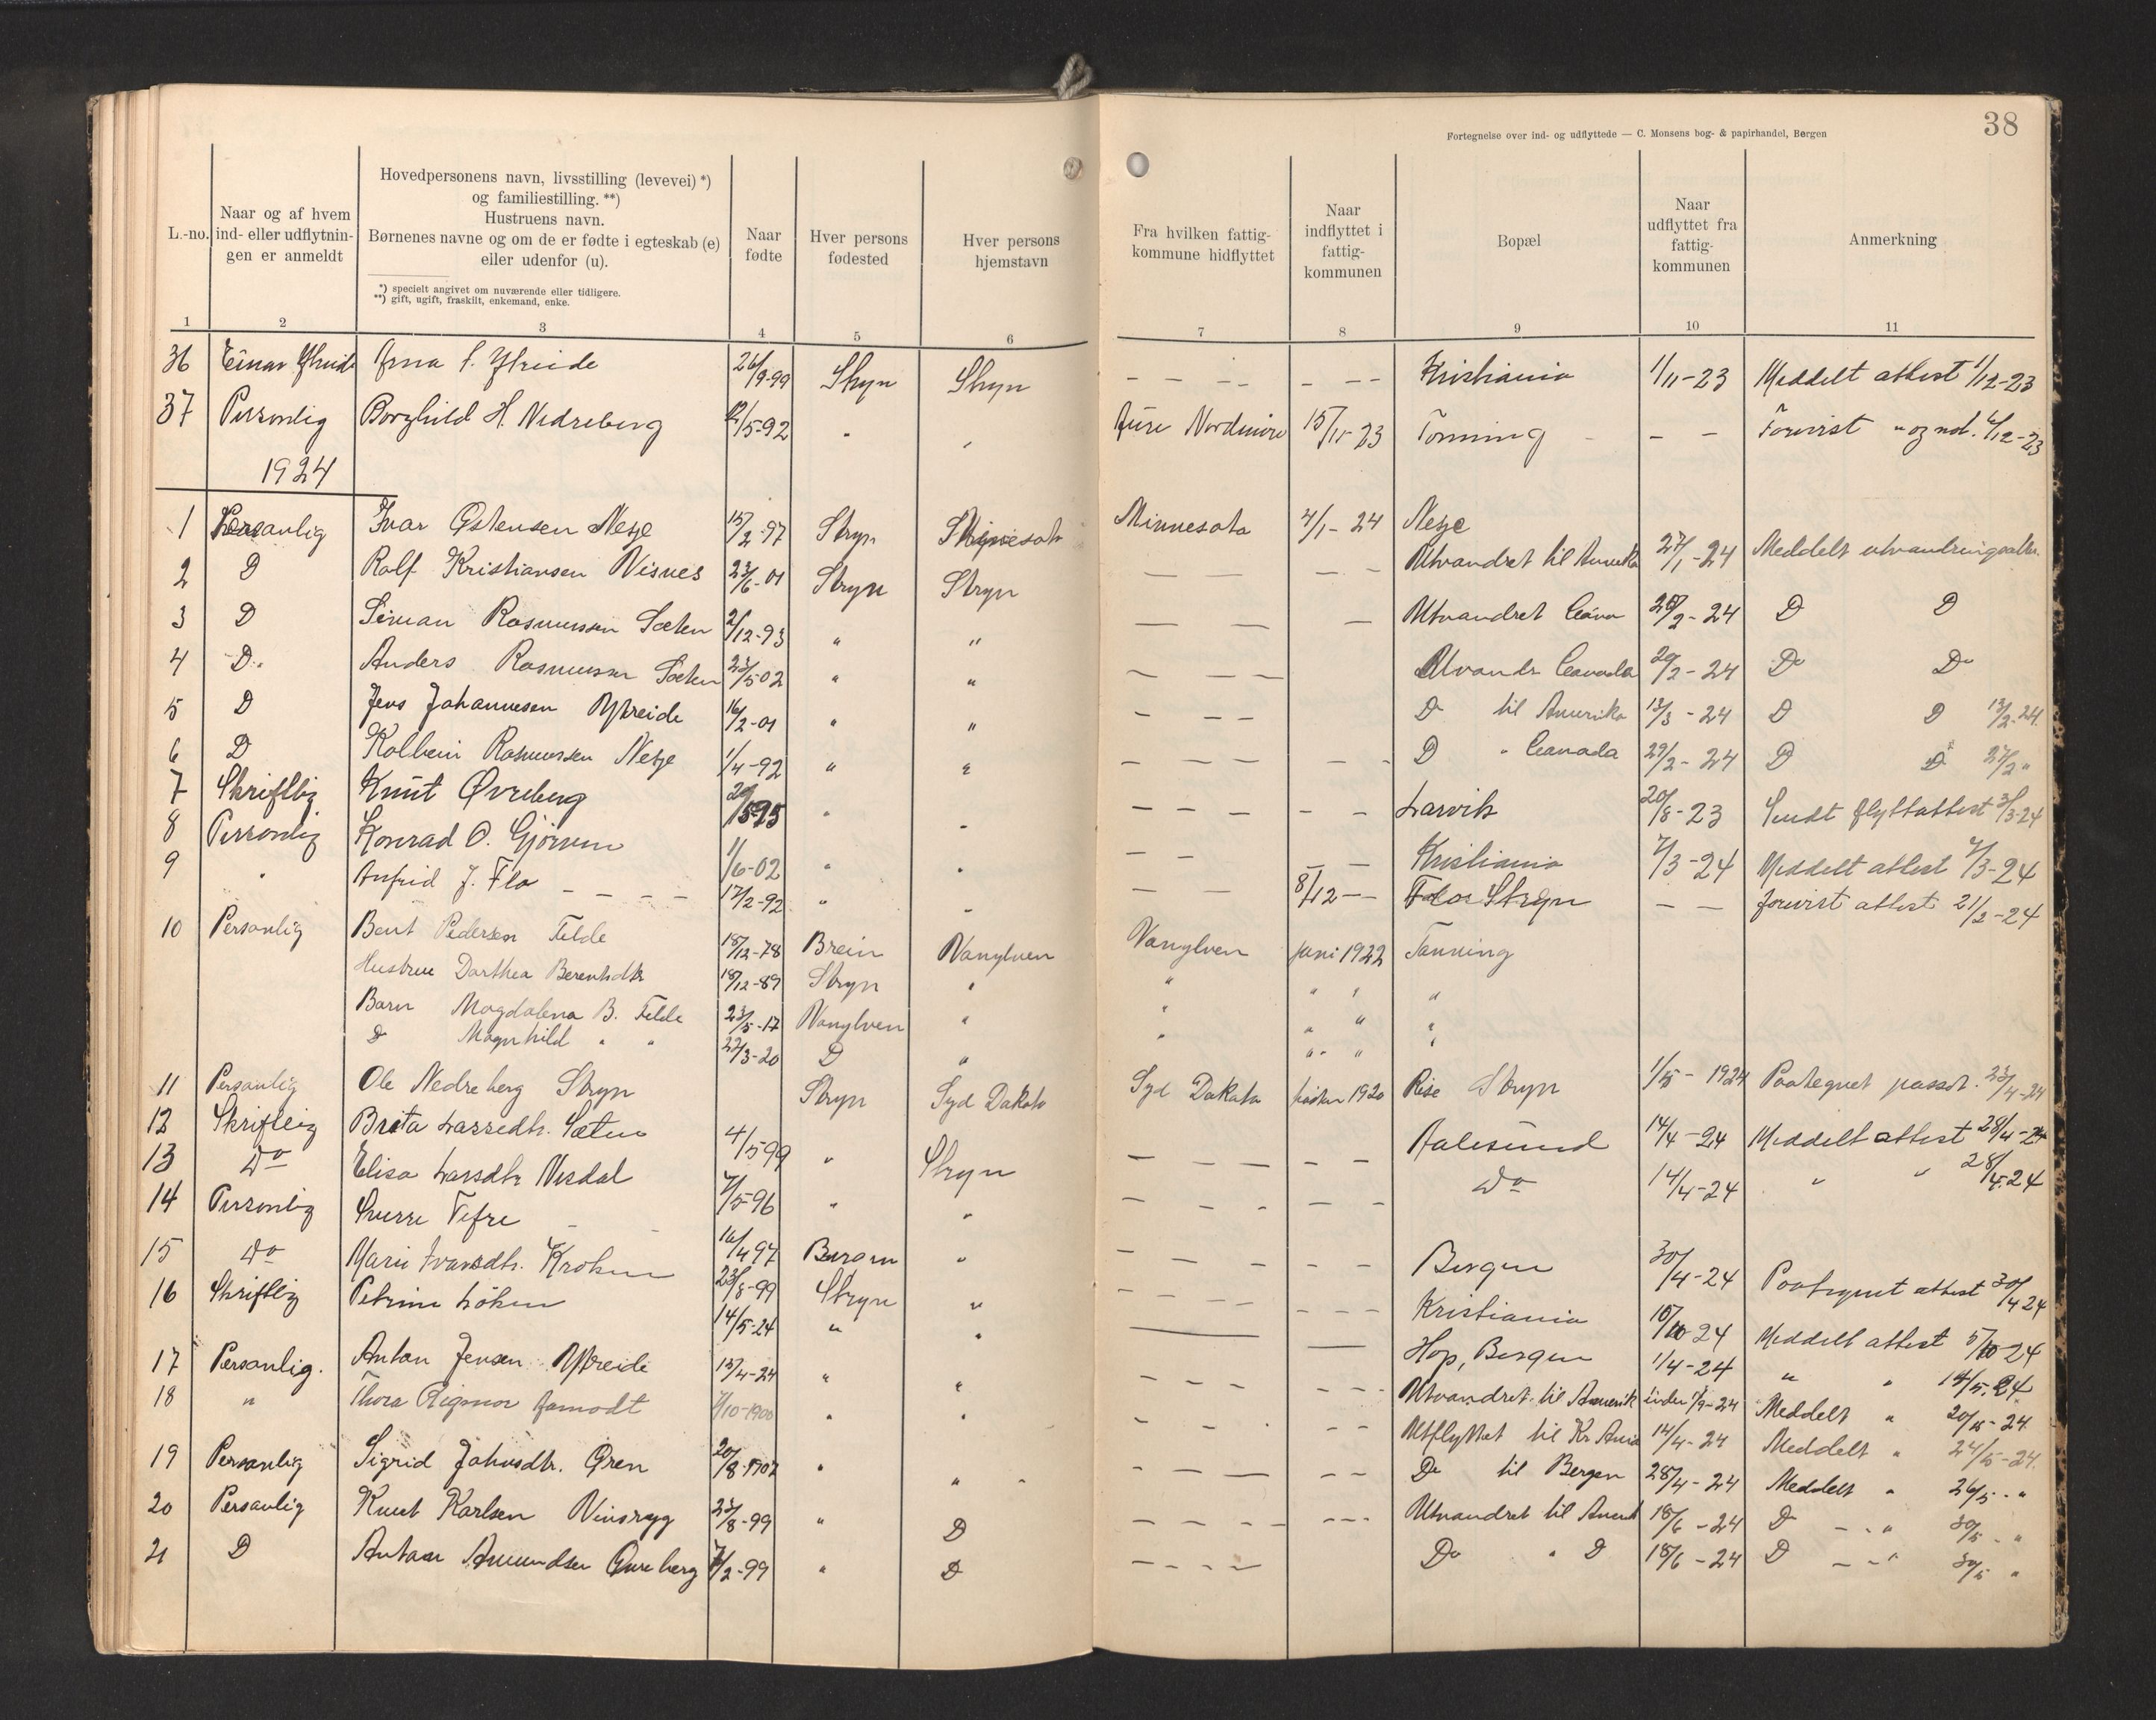 38
Fortegnelse over ind- og udflyttede — C. Monsens bog- & papirhandel, Bergen
L.-no.
Naar og af hvem
ind- eller udflytnin-
gen er anmeldt
Hovedpersonens navn, livsstilling (levevei) *)
og familiestilling. **)
Hustruens navn.
Børnenes navne og om de er fødte i egteskab (e)
eller udenfor (u).
*) specielt angivet om nuværende eller tidligere.
**) gift, ugift, fraskilt, enkemand, enke.
Naar
fødte
Hver persons
fødested
Hver persons
hjemstavn
Fra hvilken fattig-
kommune hidflyttet
Naar
indflyttet i
fattig-
kommunen
Bopæl
Naar
udflyttet fra
fattig-
kommunen
Anmerkning
1 2 3 4 5 6 7 8 9 10 11
36 Einar Ytreide Arna P. Ytreide 26/9-99 Stryn Stryn – – – – – – – Kristiania 1/11-23 Meddelt attest 1/12-23
37 Personlig Borghild H. Nedreberg 12/5-92 " " Aure Nordmöre 15/11-23 Tonning – – – Forvist " og med. 4/12-23
1924
1 Personlig Ivar Østensen Nesje 15/2-97 Stryn Minnesota 4/1-24 Nesje
2 D Rolf Kristiansen Visnes 23/6-01 Stryn Stryn — — — – Utvandret til Amerika 27/1-24 Meddelt utvandringsatt.
3 D Siman Rasmussen Sæten 2/12-93 " " — — — Utvandret 28/2-24 D D
4 D. Anders Rasmussen Sæten 23/5 02 " " – – – Utvandr Canada 29/2-24 Do Do
5 D Jens Johannesen Ytreide 16/2-01 " " – – – D til Amerika 13/3-24 D D 13/2-24.
6 D Kolbein Rasmussen Nesje 1/4-92 " " – – – – – D " Canada 29/2-24 D D 27/2 "
7 Skriftlig Knut Øvreberg 29/5 95 " " – – – – – Larvik 20/8-23 Sendt flyttattest 3/3-24
8 Personlig Konrad O. Gjörven 1/6-02 " " – – – – Kristiania 7/3-24 Meddelt attest 7/3-24
9 " Anfrid J. Flo – – – – 17/2-92 " " – – 8/12 – – Stryn – – forvist attest 21/2-24
10 Personlig Bent Pedersen Felde 18/12-78 Brein Vanylven Vanylven juni 1922 Tonning
Hustrue Dorthea Berentsdtr 18/12-89 Stryn " " " " "
Barn Magdalena B. Felde 23/5-17 Vanylven " " " " "
D Magnhild " " 22/3-20 D " " " " "
11 Personlig Ole Nedreberg Stryn Stryn Syd Dakota Syd Dakota hösten 1920 Rise Stryn 1/5-1924 Paategnet passet. 23/4-24
12 Skriftlig Brita Larsedtr. Sæten 4/5 99 " Stryn – – – – – Aalesund 14/4-24 Meddelt attest 28/4-24
13 Do Elisa Larsdtr Vesdal 7/5-96 " " – – – – – Do 14/4-24 " " 28/4.24
14 Personlig Sverre Tefre 16/4 97 Bergen " – – – – – Bergen 30/4-24 Paategnet attest 30/4 24
15 Do Marie Ivarsdtr. Kroken 23/8-99 Stryn " – – – – – – – Kristiania 10/10 24 Meddelt attest 5/10-24
16 Skriftlig Petrine Löken 14/5-24 " " — — Hop, Bergen 1/4-24 " " 14/5.24
17 Personlig. Anton Jensen Ytreide 13/4-24 " " – – – – – – Utvandret til Amerik Meddelt " 20/5-24
18 " Thora Rigmor Aamodt 7/10-1900 " " – – – – – Utflyttet til Kr.Ania 14/4-24 Meddelt " 24/5-24.
19 Personlig Sigrid Johnsdtr. Ören 20/8-1902 " " – – – – – – Do til Bergen 28/4-24 Meddelt " 26/5 - "
20 Personlig Knut Karlsen Vinsryg 23/8-99 " D – – – – – – – Utvandret til Amerik 18/6-24 D – – " 30/5 - "
21 D Anton Amundsen Øvreberg 7/2-99 " D – – – – Do " D 18/6-24 D – – " 30/5 "